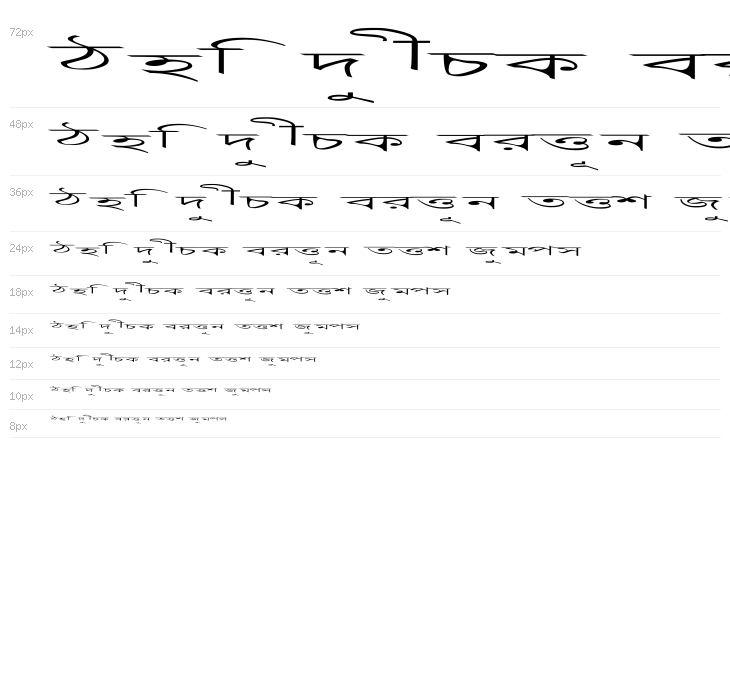 72px ঠহি দুীচক ব
48px ঠহি দুীচক বরত্তূন ত
36px ঠহি দুীচক বরত্তূন তত্তশ জু
24px ঠহি দুীচক বরত্তূন তত্তশ জুমপস
18px ঠহি দুীচক বরত্তূন তত্তশ জুমপস
14px ঠহি দুীচক বরত্তূন তত্তশ জুমপস
12px ঠহি দুীচক বরত্তূন তত্তশ জুমপস
10px ঠহি দুীচক বরত্তূন তত্তশ জুমপস
8px ঠহি দুীচক বরত্তূন তত্তশ জুমপস